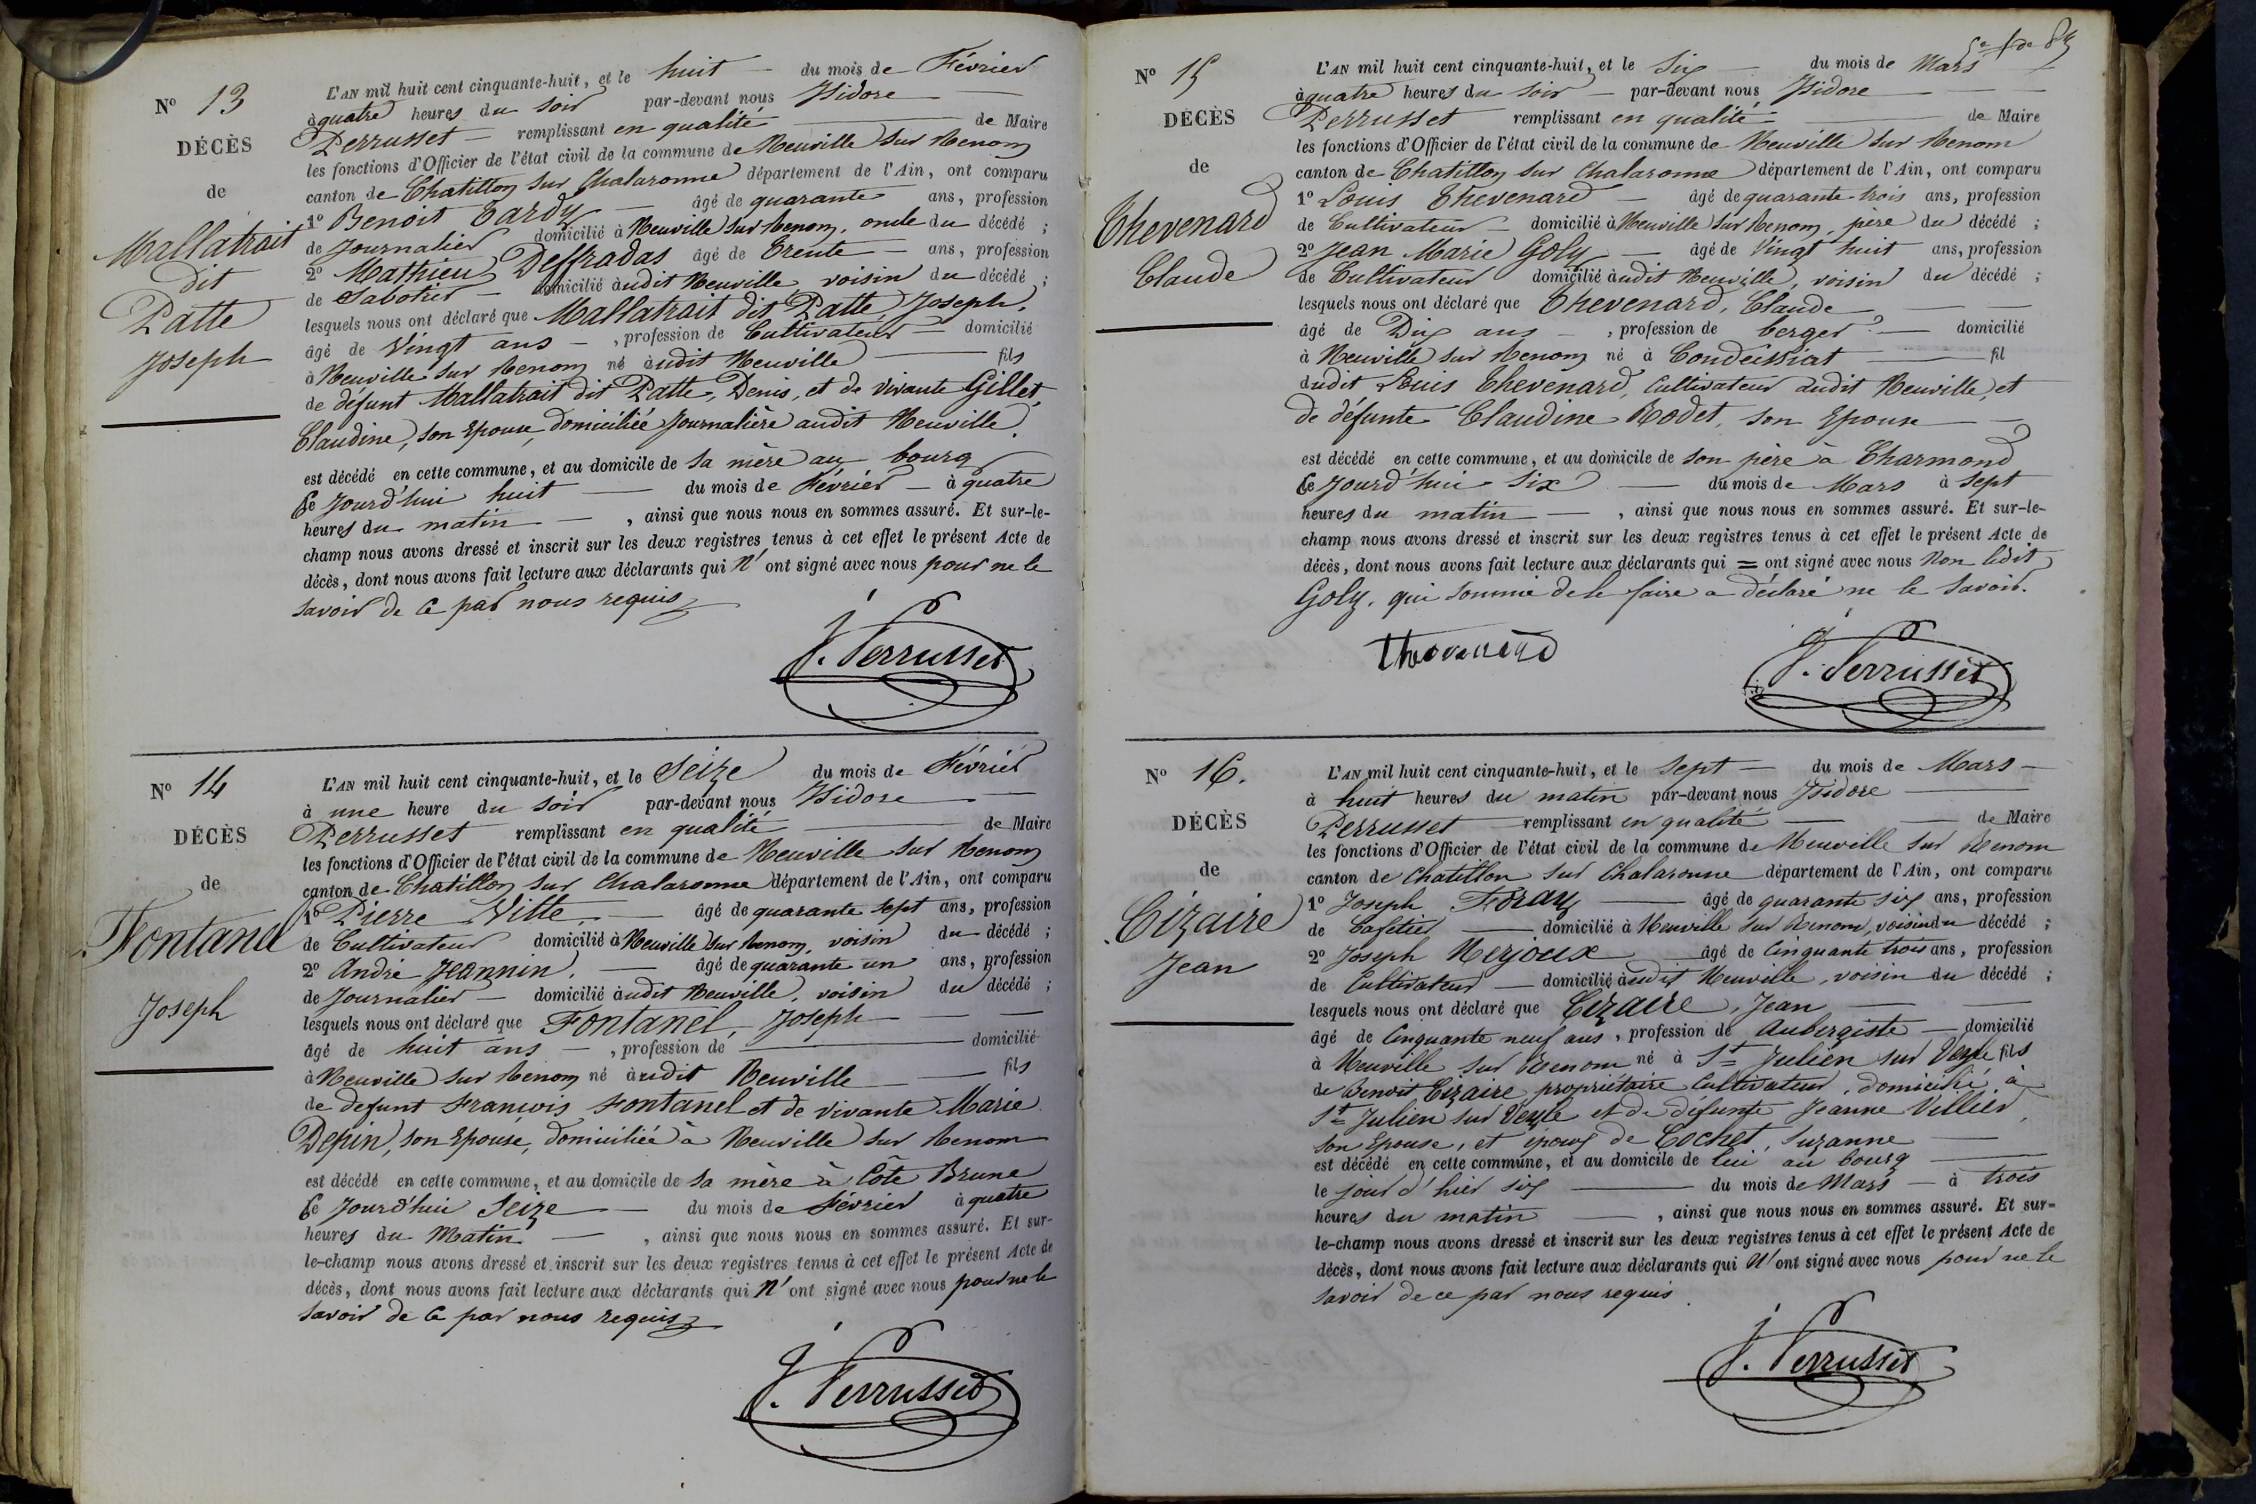 N° 13
DÉCÈS
de
Mallatrait
dit
Patte
Joseph
L'AN mil huit cent cinquante-huit, et le huit du mois de Février
à quatre heures du soir par-devant nous Isidore
Perrusset remplissant en qualité de Maire
les fonctions d'Officier de l'état civil de la commune de Neuville sur Renom
canton de Chatillon sur Chalaronne département de l'Ain, ont comparu
1° Benoit Tardy âgé de quarante ans, profession
de Journalier domicilié à Neuville sur Renom, oncle du décédé ;
2° Mathieu Deffradas âgé de trente ans, profession
de Sabotier domicilié audit Neuville, voisin du décédé ;
lesquels nous ont déclaré que Mallatrait dit Patte, Joseph,
âgé de Vingt ans, profession de Cultivateur domicilié
à Neuville sur Renom né audit Neuville fils
de défunt Mallatrait dit Patte, Denis, et de vivante Gillet,
Claudine, son Epouse, domiciliée Journalière audit Neuville.
est décédé en cette commune, et au domicile de sa mère au bourg
Ce Jourd'hui huit du mois de Février à quatre
heures du matin, ainsi que nous nous en sommes assuré. Et sur-le-
champ nous avons dressé et inscrit sur les deux registres tenus à cet effet le présent Acte de
décès, dont nous avons fait lecture aux déclarants qui n'ont signé avec nous pour ne le
savoir de ce par nous requis
J. Perrusset
N° 14
DÉCÈS
de
Fontanel
Joseph
L'AN mil huit cent cinquante-huit, et le Seize du mois de Février
à une heure du soir par-devant nous Isidore
Perrusset remplissant en qualité de Maire
les fonctions d'Officier de l'état civil de la commune de Neuville sur Renom
canton de Chatillon sur Chalaronne département de l'Ain, ont comparu
1° Pierre Nitte, âgé de quarante sept ans, profession
de Cultivateur domicilié à Neuville sur Renom, voisin du décédé ;
2° André Jeannin, âgé de quarante un ans, profession
de Journalier domicilié audit Neuville, voisin du décédé ;
lesquels nous ont déclaré que Fontanel, Joseph
âgé de huit ans, profession de domicilié
à Neuville sur Renom né audit Neuville fils
de défunt Francois Fontanel et de vivante Marie
Depin, son Epouse, domiciliée à Neuville sur Renom
est décédé en cette commune, et au domicile de sa mère à Côte Brune
Ce Jourd'hui Seize du mois de Février à quatre
heures du Matin, ainsi que nous nous en sommes assuré. Et sur-
le-champ nous avons dressé et inscrit sur les deux registres tenus à cet effet le présent Acte de
décès, dont nous avons fait lecture aux déclarants qui n'ont signé avec nous pour ne le
savoir de ce par nous requis
J. Perrusset
N° 15
DÉCÈS
de
Thevenard
Claude
L'AN mil huit cent cinquante-huit, et le Six du mois de Mars
à quatre heures du soir par-devant nous Isidore
Perrusset remplissant en qualité de Maire
les fonctions d'Officier de l'état civil de la commune de Neuville sur Renom
canton de Chatillon sur Chalaronne département de l'Ain, ont comparu
1° Louis Thevenard âgé de quarante-trois ans, profession
de Cultivateur domicilié à Neuville sur Renom, père du décédé ;
2° Jean Marie Goly âgé de Vingt huit ans, profession
de Cultivateur domicilié audit Neuville, voisin du décédé ;
lesquels nous ont déclaré que Thevenard, Claude
âgé de Dix ans, profession de berger domicilié
à Neuville sur Renom né à Condeissiat fil
dudit Louis Thevenard, Cultivateur audit Neuville, et
de défunte Claudine Rodet, son Epouse
est décédé en cette commune, et au domicile de son père à Charmond
Ce Jourd'hui Six du mois de Mars à sept
heures du matin, ainsi que nous nous en sommes assuré. Et sur-le-
champ nous avons dressé et inscrit sur les deux registres tenus à cet effet le présent Acte de
décès, dont nous avons fait lecture aux déclarants qui = ont signé avec nous non ledit
Goly, qui sommé de le faire a déclaré ne le savoir.
Thevenard
J. Perrusset
N° 16.
DÉCÈS
de
Cizaire
Jean
L'AN mil huit cent cinquante-huit, et le sept du mois de Mars
à huit heures du matin par-devant nous Isidore
Perrusset remplissant en qualité de Maire
les fonctions d'Officier de l'état civil de la commune de Neuville sur Renom
canton de Chatillon sur Chalaronne département de l'Ain, ont comparu
1° Joseph Foray âgé de quarante six ans, profession
de Cafetier domicilié à Neuville sur Renom, voisin du décédé ;
2° Joseph Merjoux âgé de Cinquante trois ans, profession
de Cultivateur domicilié audit Neuville, voisin du décédé ;
lesquels nous ont déclaré que Cizaire, Jean
âgé de Cinquante neuf ans, profession de Aubergiste domicilié
à Neuville sur Renom né à St Julien sur Veyle fils
de Benoit Cizaire propriétaire Cultivateur, domicilié à
St Julien sur Veyle et de défunte Jeanne Villier,
son Epouse, et époux de Cochet, Suzanne
est décédé en cette commune, et au domicile de lui au bourg
le jour d'hier six du mois de Mars à trois
heures du matin, ainsi que nous nous en sommes assuré. Et sur-
le-champ nous avons dressé et inscrit sur les deux registres tenus à cet effet le présent Acte de
décès, dont nous avons fait lecture aux déclarants qui n'ont signé avec nous pour ne le
savoir de ce par nous requis
J. Perrusset